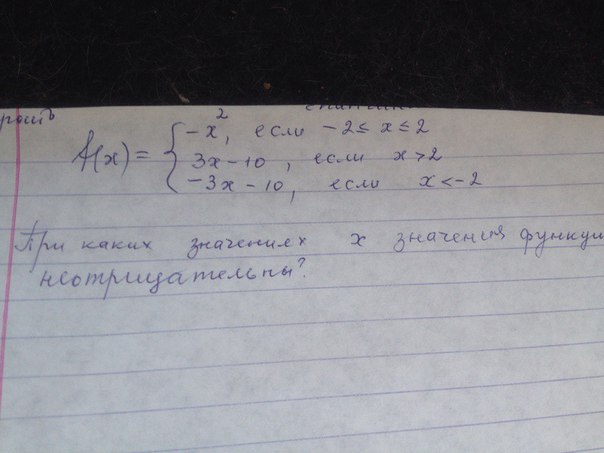 f(x) = { -x², если -2 ≤ x ≤ 2
3x - 10, если x > 2
-3x - 10, если x < -2
При каких значениях x значения функци
неотрицательны?